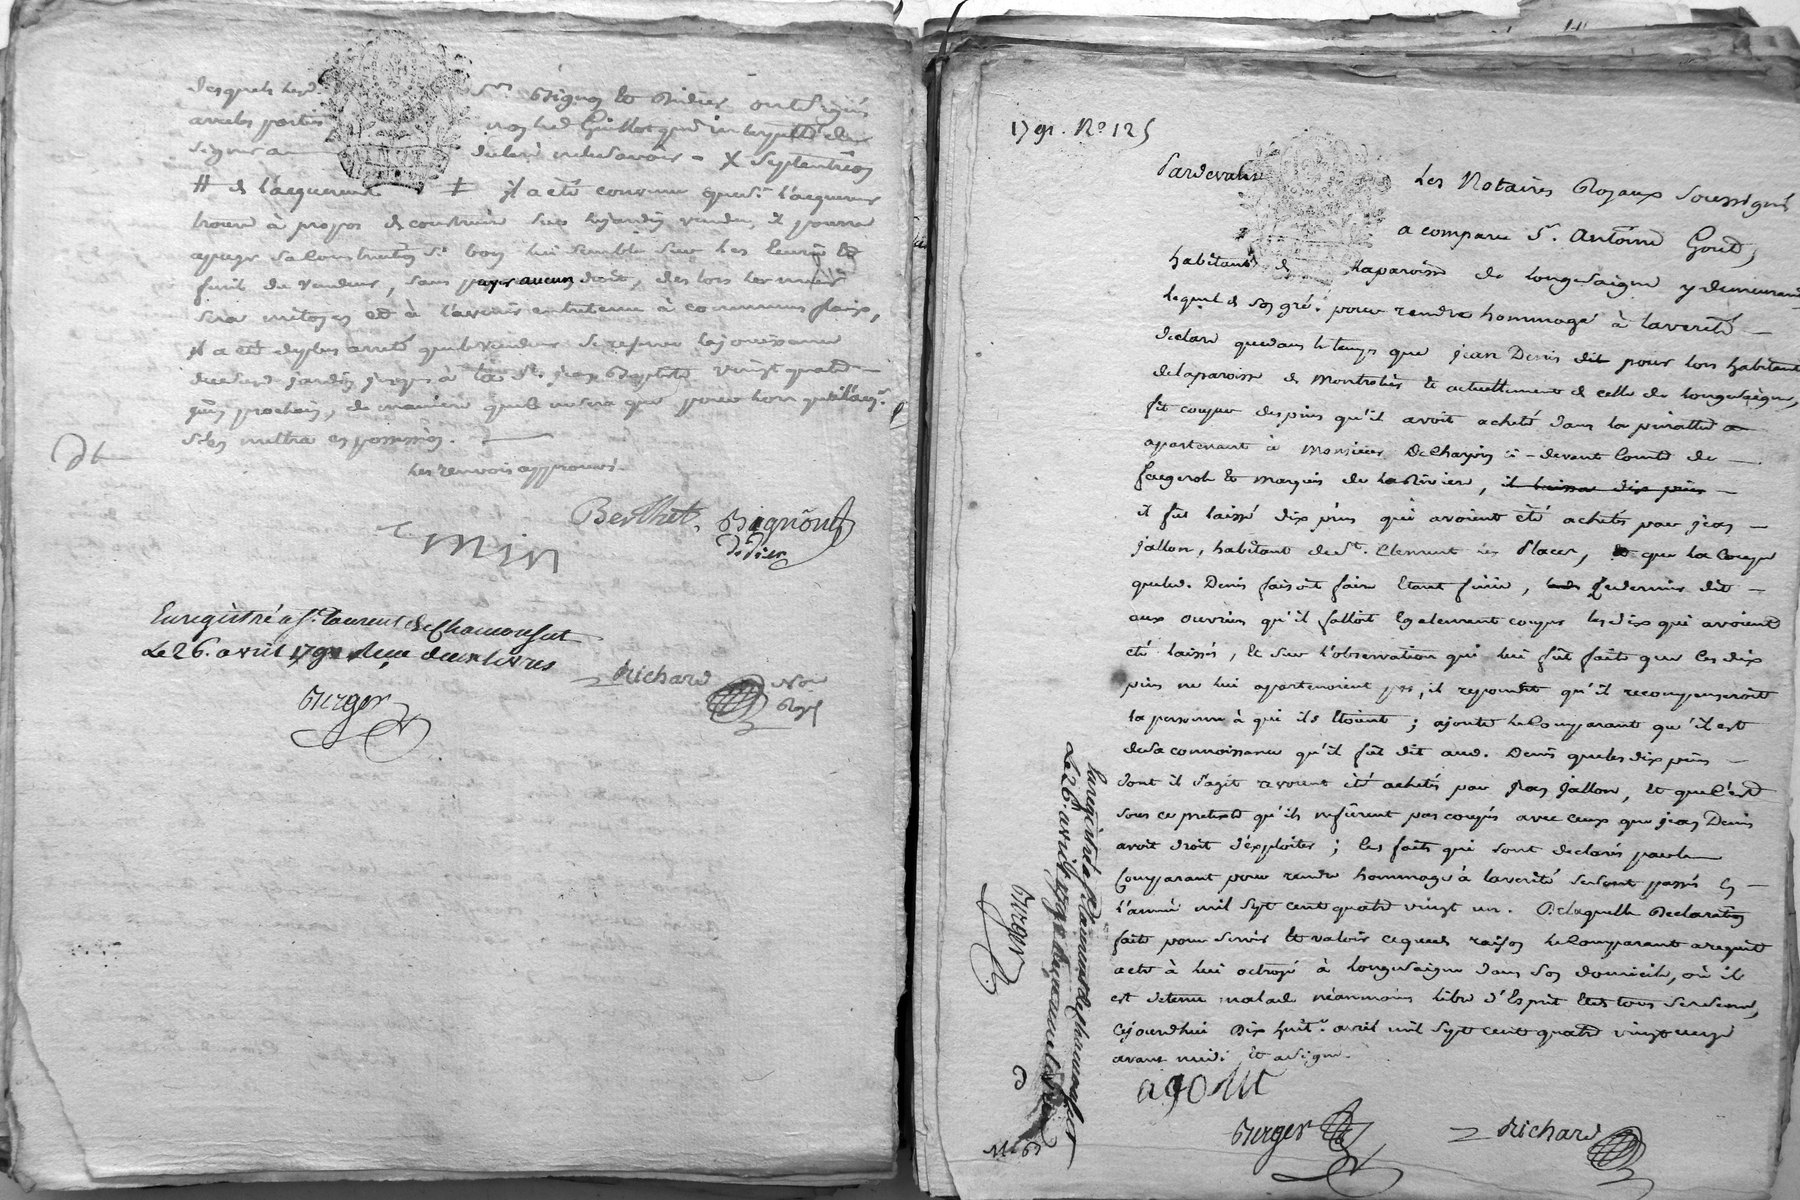 desquels led. Srs. Bignon & Didier ont signé
avec les parties
signer a declaré ne le savoir = X Septentrion
# de l'acquereur ‡ il a eté convenu que si l'acquereur
trouve à propos de construire sur le jardin vendu, il pourra
apuyer sa Construction si bon lui semble sur les
du vendeur, sans payer aucun droit, des lors les murs
sera mitoyen et à l'avenir entretenu à communs fraix,
il a eté de plus arreté que le vendeur se reserve la jouissance
dud. jardin jusques à la St. jean Baptiste vingt quatre
juin prochain, de maniere que ce ne sera que pour lors que l'acqr.
s'en mettra en possession.
Les renvois approuvés.
Berthet. Bignon
Didier
Enregistré a St. Laurent de Chamousset
Le 26. avril 1791 Reçu deux livres
Berger
Richard
Nore
Royl
1791. No. 125
Pardevant Les Notaires Royaux Soussignés
a comparu Sr. Antoine Gout,
habitant de la paroisse de Longesaigne y demeurant
lequel de son gré: pour rendre hommage à la verité
declare que dans le temps que jean Denis dit pour lors habitant
de la paroisse de Montrotier & actuellement de celle de Longesaigne,
fit couper des pins qu'il avoit acheté dans la
apartenant à Monsieur De Charpin ci-devant Comte de
faugerole & Marquis de La Riviere, il laissa dix pins
il fut laissé dix pins qui avoient été achetés par jean
jallon, habitant de St. Clement les Places, & que la Coupe
que led. Denis faisoit faire etant finie, ce dernier dit
aux ouvriers qu'il falloit egalement couper les dix qui avoient
été laissés, et sur l'observation qui lui fût faite que ces dix
pins ne lui apartenoient pas, il repondit qu'il recompenseroit
la personne à qui ils etoient; ajoute le Comparant qu'il est
de sa connoissance qu'il fût dit aud. Denis que les dix pins
dont il s'agit avoient été achetés par jean jallon, et que c'est
sous ce pretexte qu'ils ne furent pas coupés avec ceux que jean Denis
avoit droit d'exploiter; les faits qui sont declarés par le
Comparant pour rendre hommage à la verité se sont passés en
l'année mil sept cent quatre vingt un. De laquelle Declaration
faite pour servir et valoir ce que de raison le Comparant a requit
acte à lui octroyé à Longesaigne dans son domicile, où il
est detenu malade néanmoins libre d'Esprit et de tous ses sens,
cejourdhui Dix huit avril mil sept cent quatre vingt onze
avant midi & a signé.
a gout
Berger
Richard
Enregistré a St. Laurent de chamousset
Le 26. avril 1791 Reçu
Berger